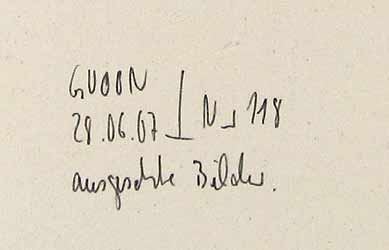 GUOON
28.06.07 N 118
Bilder.